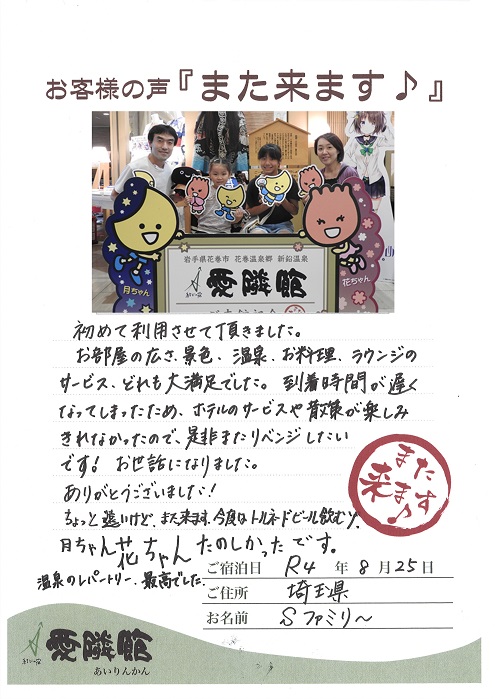 お客様の声『また来ます♪』
岩手県花巻市 花巻温泉郷 新鉛温泉
愛隣館
月ちゃん
花ちゃん
初めて利用させて頂きました。
お部屋の広さ、景色、温泉、お料理、ラウンジの
サービス、どれも大満足でした。到着時間が遅く
なってしまったため、ホテルのサービスや散策が楽しみ
きれなかったので、是非またリベンジしたい
です! お世話になりました。
ありがとうございました!
ちょっと遠いけど、また来ます。今度はトルネードビール飲むゾ。
月ちゃん花ちゃんたのしかったです。
温泉のレパートリー、最高でした。
また来ます♪
ご宿泊日 R4年8月25日
ご住所 埼玉県
お名前 Sファミリ〜
愛隣館
あいりんかん